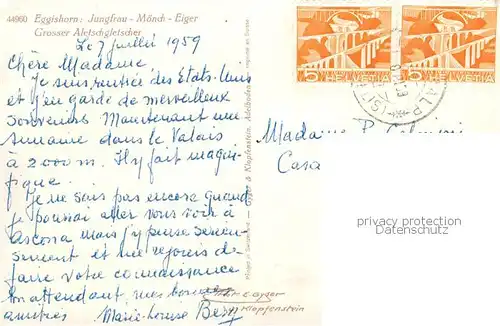 44960 Eggishorn: Jungfrau - Mönch - Eiger
Grosser Aletschgletscher
Le 7 juillet 1959
Chère Madame
Je suis rentrée des Etats-Unis
et j'en garde de merveilleux
souvenirs Maintenant une
semaine dans le Valais
à 2000 m. Il y fait magni-
fique.
Je ne sais pas encore quand
je pourrai aller vous voir à
Ascona mais j'y pense sérieu-
sement et me réjouis de
faire votre connaissance
En attendant, mes bonnes
amitiés Marie-Louise
Gyger & Klopfenstein, Adelboden
Klopfenstein
5 HELVETIA
5 HELVETIA
ALP
Madame P.
Casa
privacy protection
www.oldthing.com